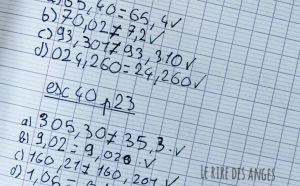 a) 65,40 = 65,4 ✓
b) 70,02 ≠ 7,2 ✓
c) 93,301 ≠ 93,310 ✓
d) 024,260 = 24,260 ✓
exc 40 p23
a) 305,30 ≠ 35,3. ✓
b) 9,02 = 9,020. ✓
c) 160,21 ≠ 160,201 ✓
d) 1,05
LE RIRE DES ANGES